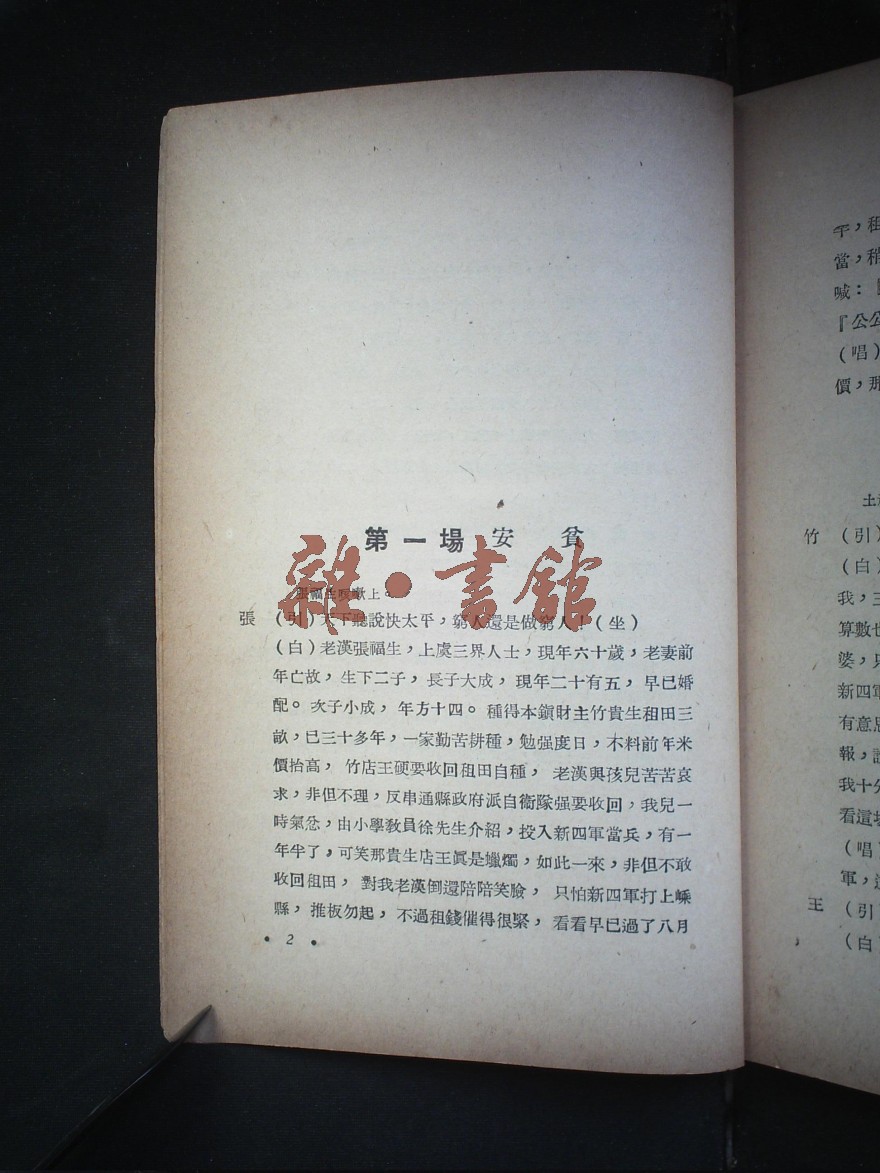 第一場 安 貧
張福生咳嗽上。
張 (引)天下聽說快太平,窮人還是做窮人!(坐)
(白)老漢張福生,上虞三界人士,現年六十歲,老妻前
年亡故,生下二子,長子大成,現年二十有五,早已婚
配。次子小成,年方十四。種得本鎮財主竹貴生租田三
畝,已三十多年,一家勤苦耕種,勉强度日,不料前年米
價抬高,竹店王硬要收回租田自種,老漢與孩兒苦苦哀
求,非但不理,反串通縣政府派自衛隊强要收回,我兒一
時氣忿,由小學敎員徐先生介紹,投入新四軍當兵,有一
年半了,可笑那貴生店王眞是蠟燭,如此一來,非但不敢
收回租田,對我老漢倒還陪陪笑臉,只怕新四軍打上嵊
縣,推板勿起,不過租錢催得很緊,看看早已過了八月
• 2 •
雜•書館
當,稍
喊:
『公公
(唱)
價,那
竹 (引)
(白)
我,三
算數也
婆,只
新四軍
有意思
報,
我十分
看這
(唱)
軍,
王 (引)
(白)